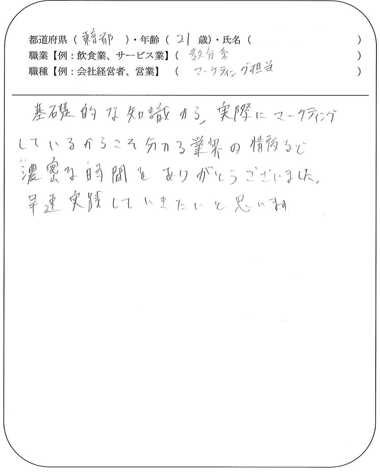 都道府県（東京都）・年齢（21歳）・氏名（　　　）
職業【例：飲食業、サービス業】（　　　）
職種【例：会社経営者、営業】（マーケティング担当）
基礎的な知識から、実際にマーケティング
しているからこそ分かる業界の情報まで
濃密な時間をありがとうございました。
早速実践していきたいと思います